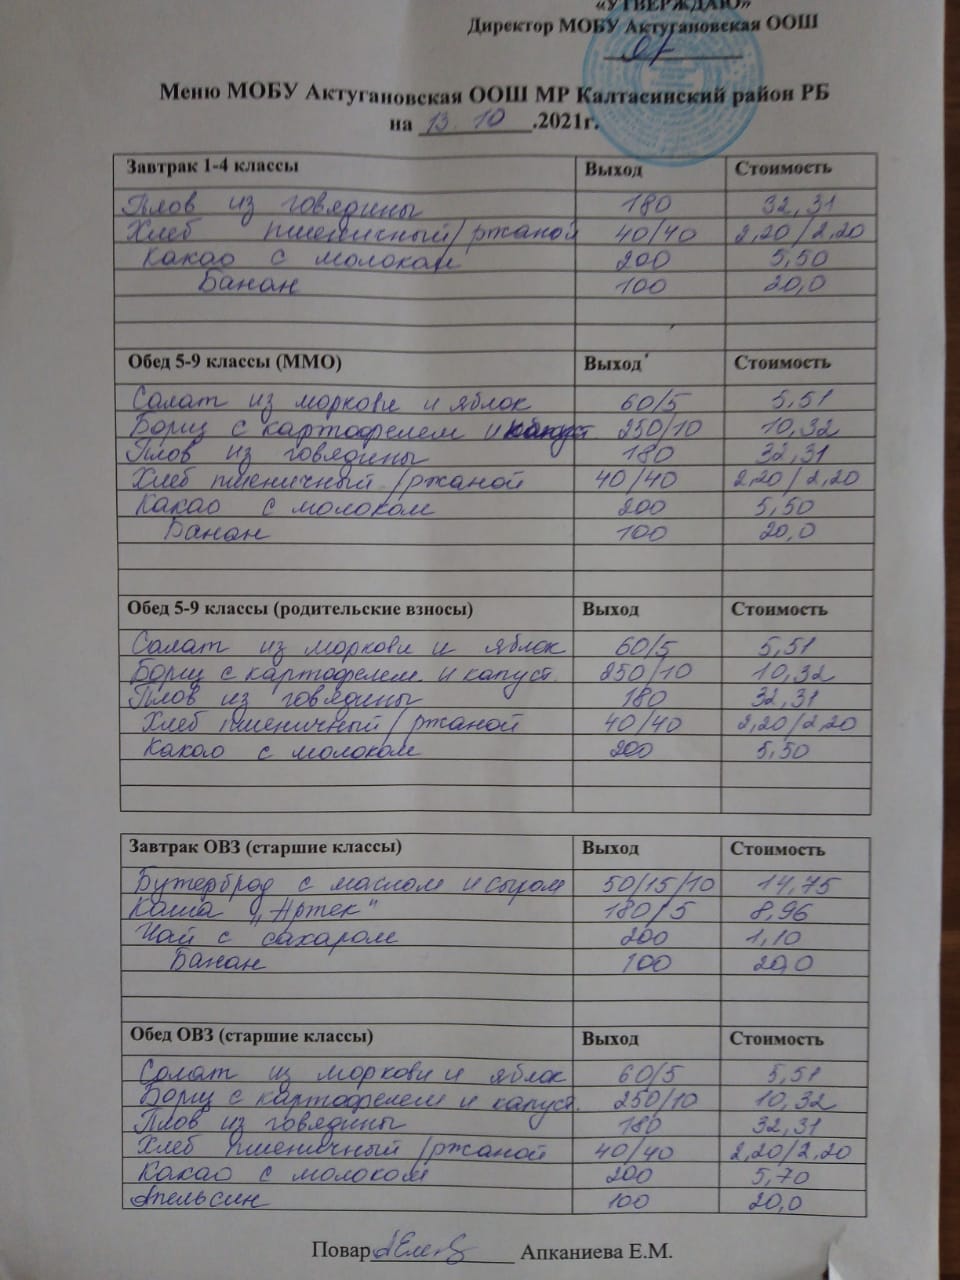 «УТВЕРЖДАЮ»
Директор МОБУ Актугановская ООШ
Меню МОБУ Актугановская ООШ МР Калтасинский район РБ
на 13.10.2021г.
Завтрак 1-4 классы Выход Стоимость
Плов из говядины 180 32,31
Хлеб пшеничный/ржаной 40/40 2,20/2,20
Какао с молокам 200 5,50
Банан 100 20,0
Обед 5-9 классы (ММО) Выход Стоимость
Салат из моркови и яблок 60/5 5,51
Борщ с картофелем и капуст 250/10 10,32
Плов из говядины 180 32,31
Хлеб пшеничный/ржаной 40/40 2,20/2,20
Какао с молоком 200 5,50
Банан 100 20,0
Обед 5-9 классы (родительские взносы) Выход Стоимость
Салат из моркови и яблок 60/5 5,51
Борщ с картофелем и капуст. 250/10 10,32
Плов из говядины 180 32,31
Хлеб пшеничный/ржаной 40/40 2,20/2,20
Какао с молоком 200 5,50
Завтрак ОВЗ (старшие классы) Выход Стоимость
Бутерброд с маслом и сыром 50/15/10 14,75
Каша „Артек" 180/5 8,96
Чай с сахаром 200 1,10
Банан 100 20,0
Обед ОВЗ (старшие классы) Выход Стоимость
Салат из моркови и яблок 60/5 5,51
Борщ с картофелем и капуст. 250/10 10,32
Плов из говядины 180 32,31
Хлеб пшеничный/ржаной 40/40 2,20/2,20
Какао с молоком 200 5,70
Апельсин 100 20,0
Повар Апканиева Е.М.